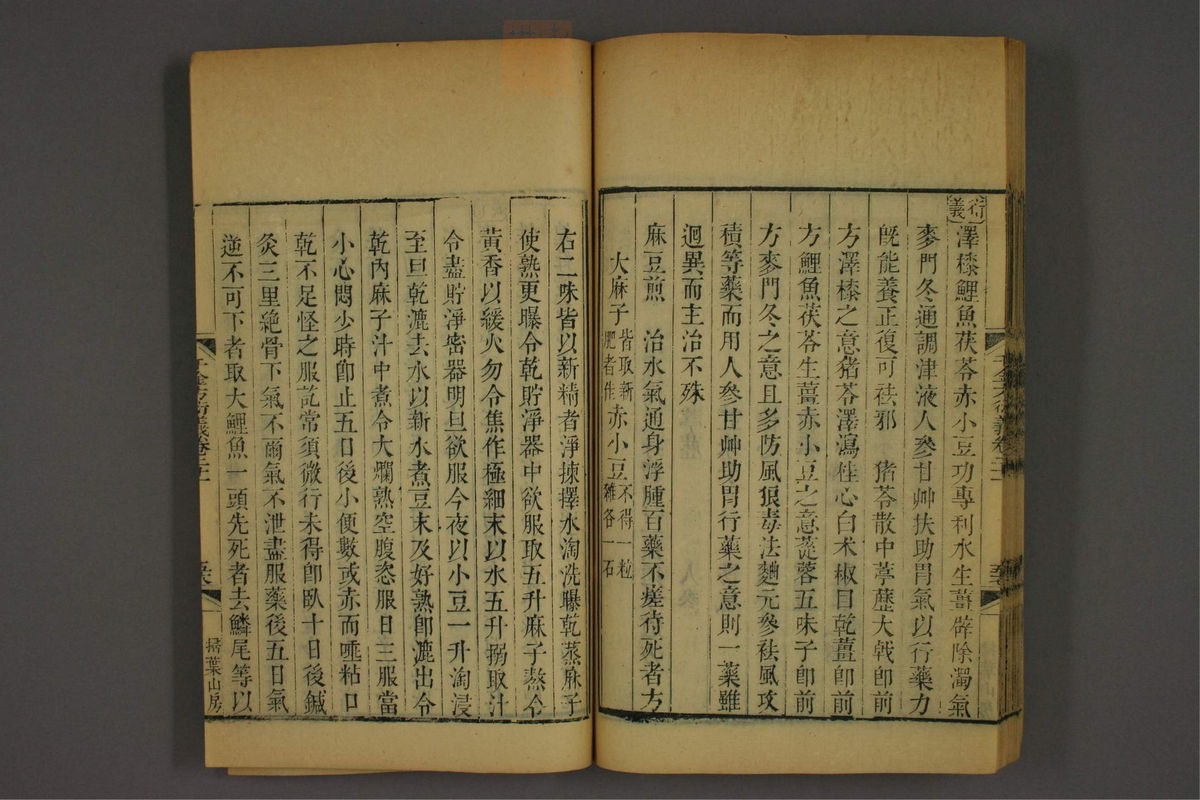 衍義
澤㯃鯉魚茯苓赤小豆功專利水生薑辟除濁氣
麥門冬通調津液人參甘艸扶助胃氣以行藥力
旣能養正復可祛邪　猪苓散中葶藶大戟卽前
方澤㯃之意猪苓澤瀉桂心白术椒目乾薑卽前
方鯉魚茯苓生薑赤小豆之意蓯蓉五味子卽前
方麥門冬之意且多防風狼毒法麯元參祛風攻
積等藥而用人參甘艸助胃行藥之意則一藥雖
迥異而主治不殊
麻豆煎　治水氣通身浮腫百藥不瘥待死者方
大麻子皆取新肥者佳赤小豆不得一粒雜各一石
右二味皆以新精者淨揀擇水淘洗曝乾蒸麻子
使熟更曝令乾貯淨器中欲服取五升麻子熬令
黃香以緩火勿令焦作極細末以水五升搦取汁
令盡貯淨密器明旦欲服今夜以小豆一升淘浸
至旦乾漉去水以新水煮豆末及好熟卽漉出令
乾內麻子汁中煮令大爛熟空腹恣服日三服當
小心悶少時卽止五日後小便數或赤而唾粘口
乾不足怪之服訖常須微行未得卽臥十日後鍼
灸三里絶骨下氣不爾氣不泄盡服藥後五日氣
逆不可下者取大鯉魚一頭先死者去鱗尾等以
千金方衍義卷二十一
掃葉山房